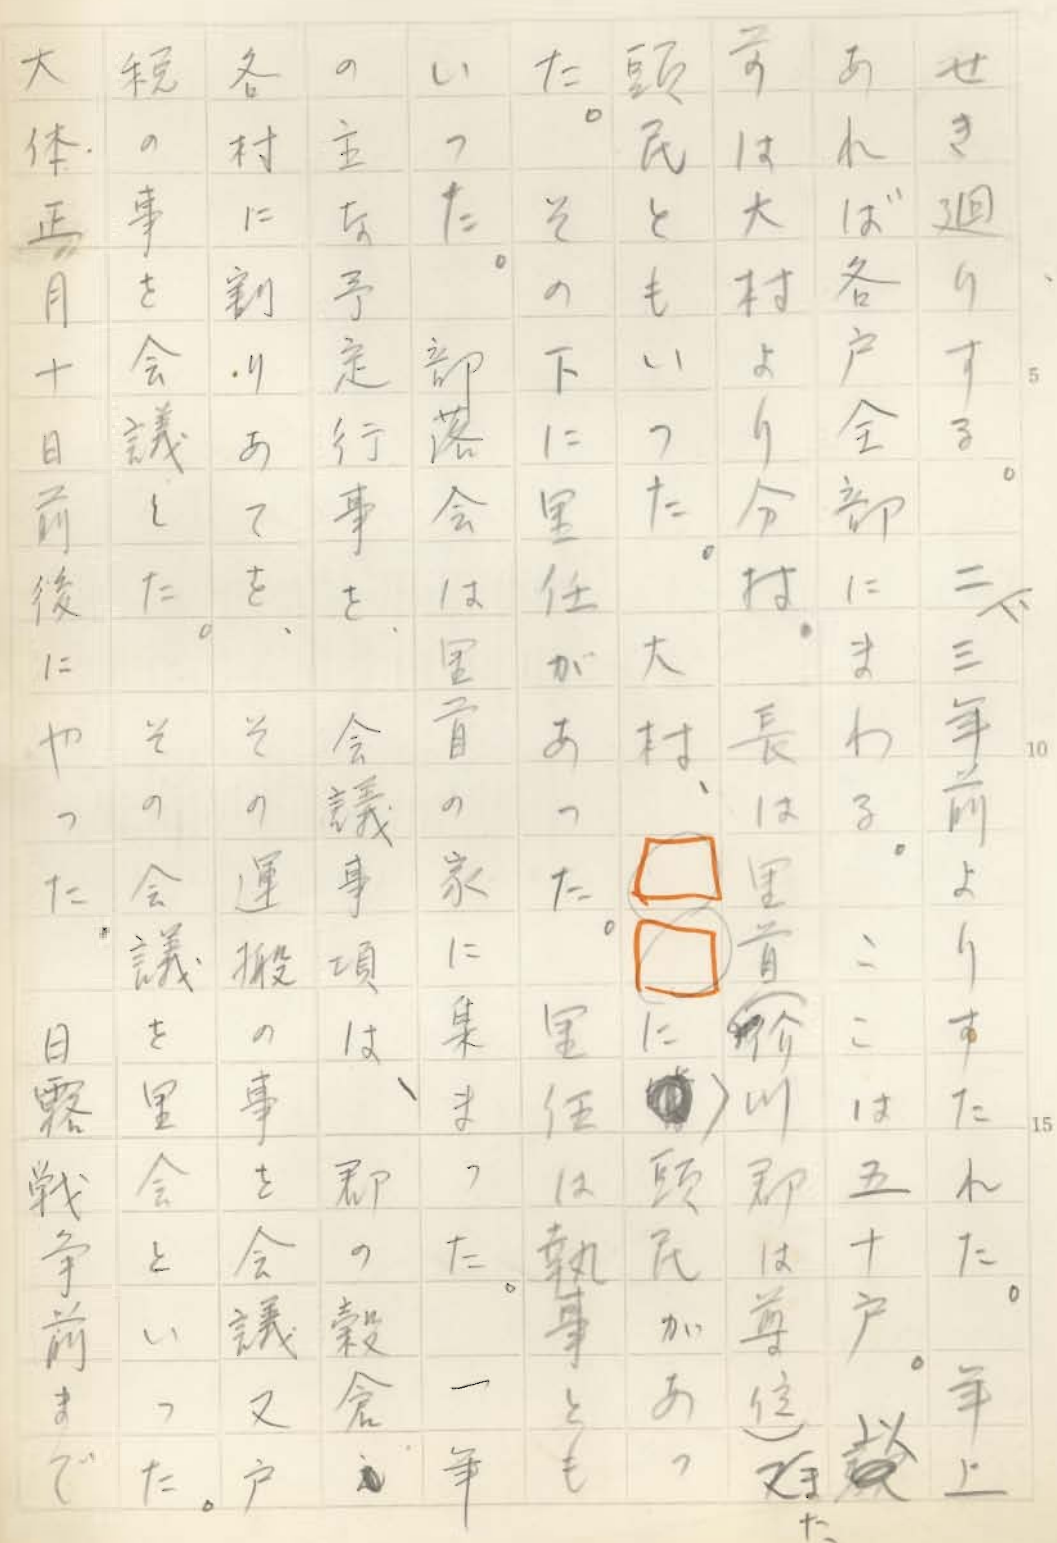 せき廻りする。二、三年前よりすたれた。年上
あれば各戸全部にまわる。ここは五十戸。以
前は大村より分村。長は里首(介川郡は尊位)又
また
頭民ともいった。大村、に頭民があっ
た。その下に里任があった。里任は執事とも
いった。部落会は里首の家に集まった。一年
の主な予定行事を、会議事項は、郡の穀倉
各村に割りあてを、その運搬の事を会議又戸
税の事を会議した。その会議を里会といった。
大体正月十日前後にやった。日露戦争前まで
5
10
15